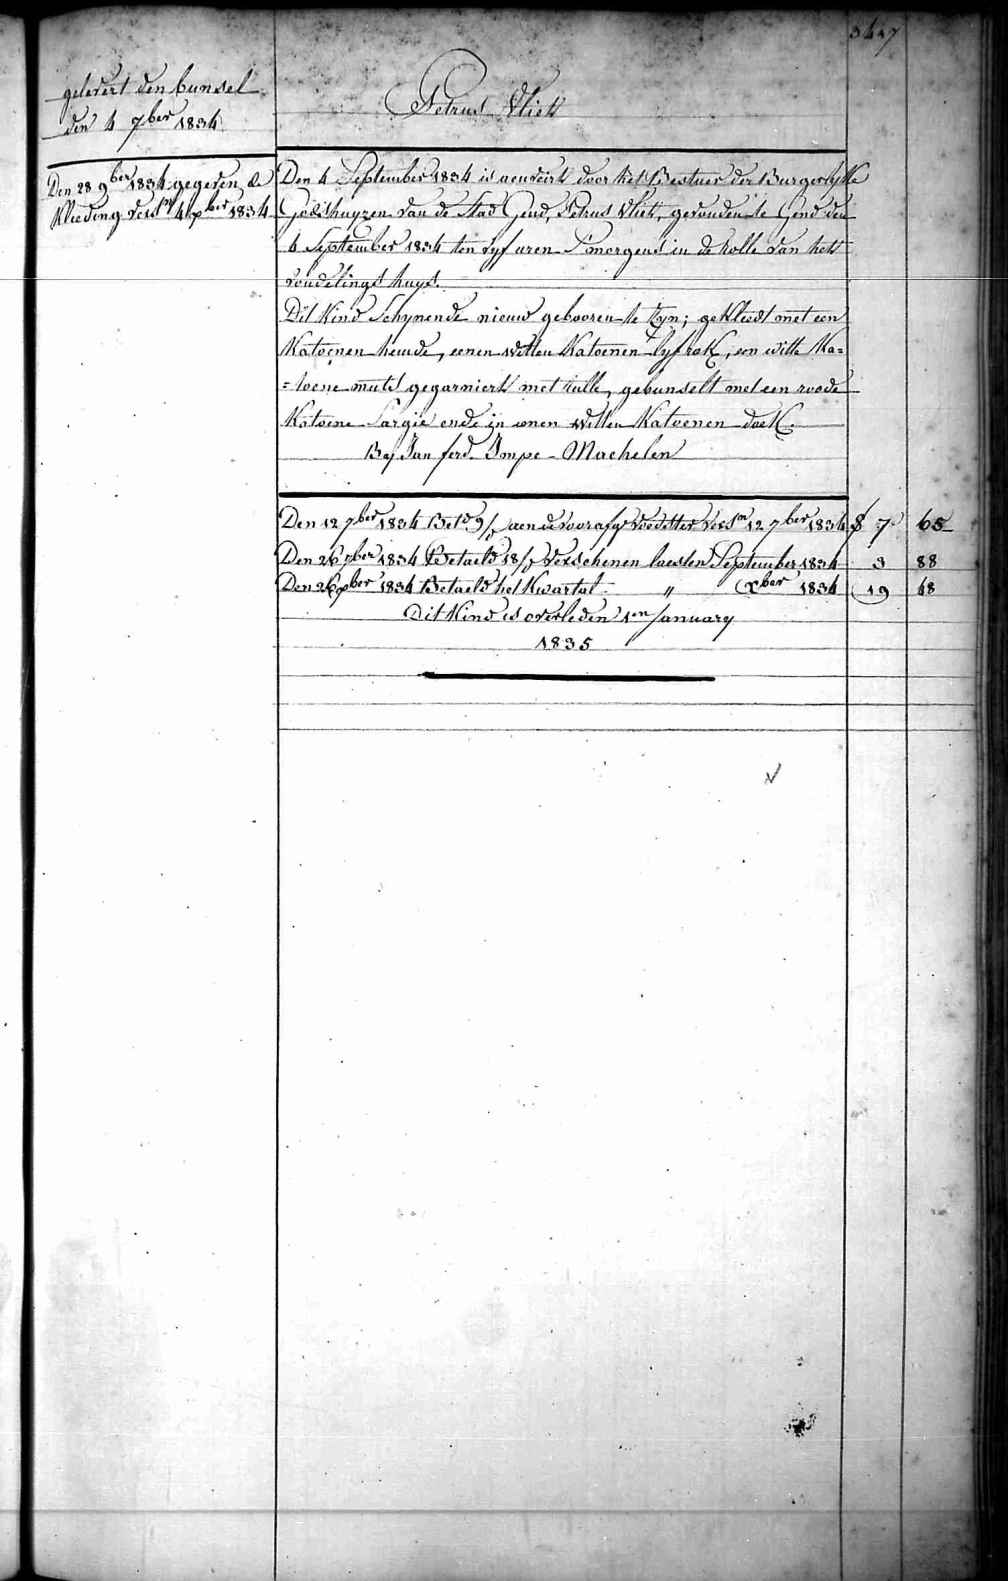 3427
gelevert den bunsel
den 4 7ber 1834
Petrus Vliek
Den 28 9ber 1834 gegeven de
Kleeding vers.n 4 xber 1834
Den 4 September 1834 is aenveirt door het Bestuer der Burgerlyke
Godshuyzen van de Stad Gend, Petrus Vliek, gevonden te Gend den
4 September 1834 ten vyf uren S'morgens in de rolle van het
vondelings huys.
Dit Kind Schynende nieuw gebooren te Zyn; gekleedt met een
Katoenen hemde, eenen witten Katoenen lyfrok, een witte Ka=
=toene muts gegarniert met tulle, gebunselt met een roode
Katoene Sargie ende in eenen witten Katoenen doek.
By Jan ferd. Impe - Machelen
Den 12 7ber 1834 Bet.d 9/ aen de voorafg. voedster vers.n 12 7ber 1834 f 7 65
Den 26 7ber 1834 Betaeld 18/ verschenen laesten September 1834 3 88
Den 26 xber 1834 Betaeld het Kwartal " xber 1834 19 48
Dit Kind is overleden 1en January
1835